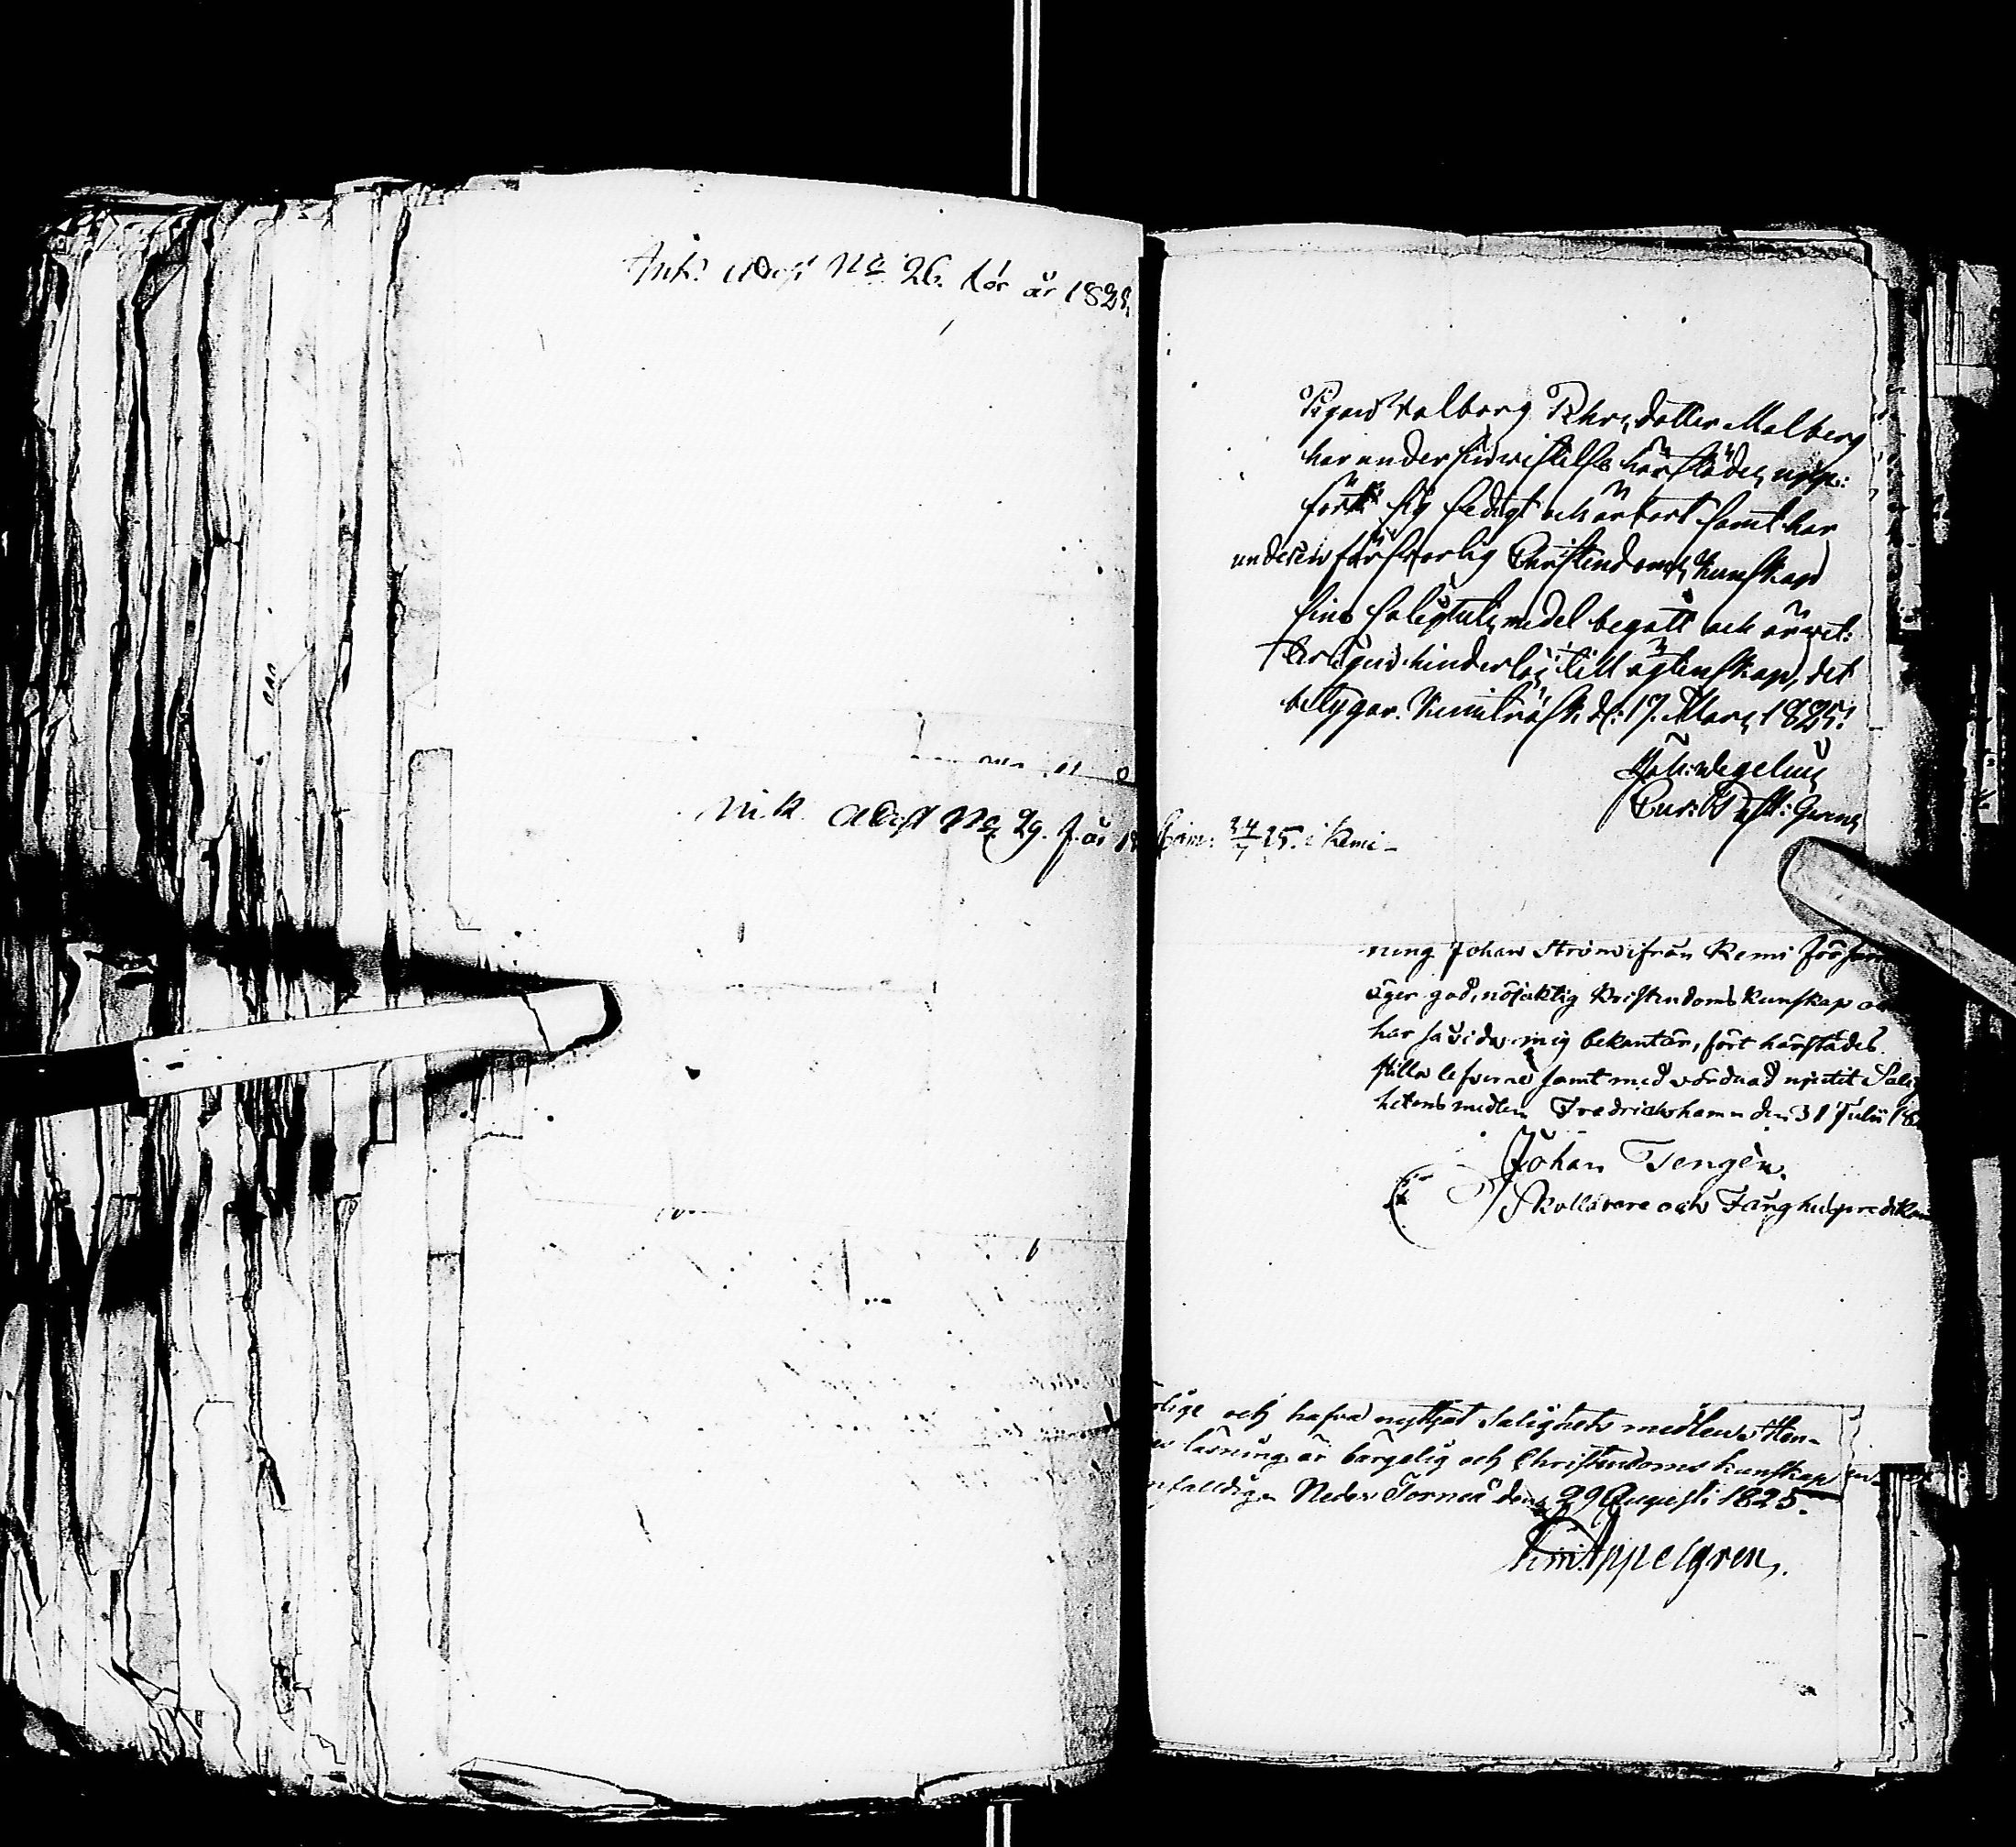 Ank: attest No 26. för år 1825.
Ank. attest No 29. f. år 18
Pigan Valborg Pehrsdotter Malberg
har under sin vistelse härstädes upp:
fördt sig sedigt och ärbart samt har
under en försvarlig Christendoms kunskap
sina salighets medel begått och är vet:
terligen hinderlös till ägtenskap, det
betygar. Kemiträsk d: 17. Mars 1825.
Joh: Wegelius
24/7 25. i Kemi-
Johan Ström ifrån Kemi
äger god, nöjaktig Kristendoms kunskap
har så vida mig bekant är, fört härstädes
stilla lefverne samt med vördnad njutit Salig
hetens medlen Fredrickshamn den 31 Julii 18
Johan Tengén.
Skollärare och Fånghuspredikan
och hafva nyttjat Salighets medlen. Hen-
läsning är bärgelig och Christendoms kunskap
enfalldig. Neder Torneå den 29 Augusti 1825.
Appelgren.